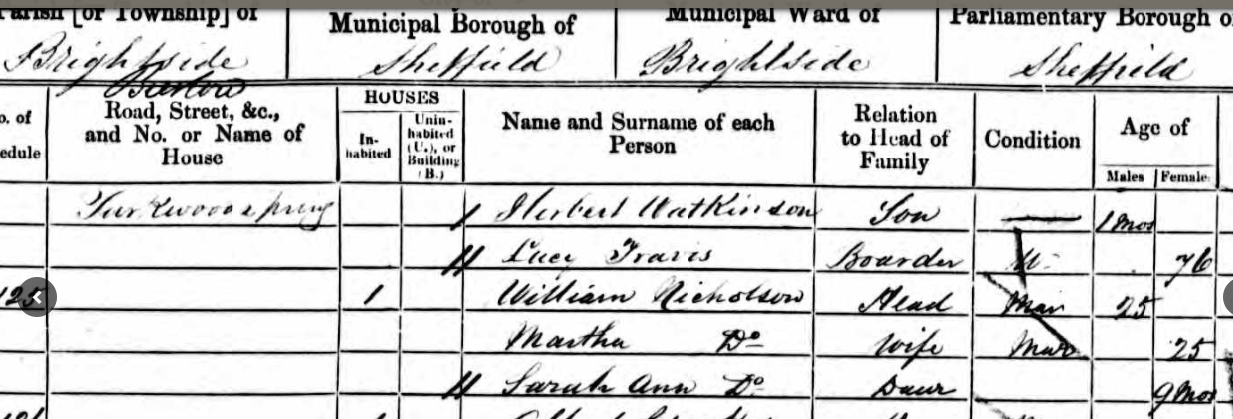 Parish [or Township] of
Municipal Borough of
Municipal Ward of
Parliamentary Borough of
Brightside
Sheffield
Brightside
Sheffield
No. of
Schedule
Road, Street, &c.,
and No. or Name of
House
HOUSES
In-
habited
Unin-
habited
(U.), or
Building
(B.)
Name and Surname of each
Person
Relation
to Head of
Family
Condition
Age of
Males
Female
Herbert Watkinson Son 1 Mos
Lucy Travis Boarder W 76
125 1 William Nicholson Head Mar 25
Martha Do Wife Mar 25
Sarah Ann Do Daur 9 Mos